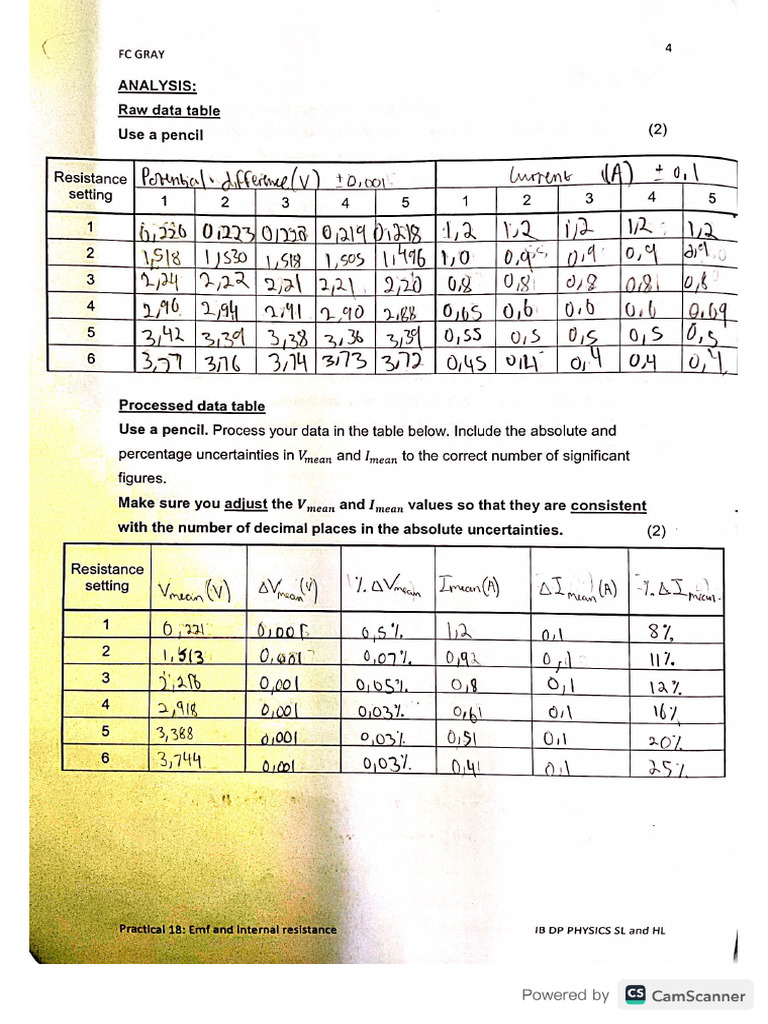 FC GRAY
4
ANALYSIS:
Raw data table
Use a pencil (2)
Resistance setting Potential difference (V) ± 0,001 Current (A) ± 0,1
1 2 3 4 5 1 2 3 4 5
1 0,223 0,219 0,218 1,2 1,2 1,2 1,2 1,2
2 1,518 1,530 1,518 1,505 1,496 1,0 0,9 0,9
3 2,24 2,22 2,21 2,21 2,20 0,8 0,8 0,8 0,8 0,8
4 2,96 2,94 2,91 2,90 2,88 0,65 0,6 0,6 0,6
5 3,42 3,39 3,38 3,36 3,39 0,55 0,5 0,5 0,5 0,5
6 3,77 3,76 3,74 3,73 3,72 0,45 0,4 0,4 0,4 0,4
Processed data table
Use a pencil. Process your data in the table below. Include the absolute and
percentage uncertainties in Vmean and Imean to the correct number of significant
figures.
Make sure you adjust the Vmean and Imean values so that they are consistent
with the number of decimal places in the absolute uncertainties. (2)
Resistance setting Vmean (V) ΔVmean (V) % ΔVmean Imean (A) ΔImean (A) % ΔImean
1 0,221 0,001 0,5% 1,2 0,1 8%
2 1,513 0,001 0,07% 0,92 0,1 11%
3 0,001 0,05% 0,8 0,1 12%
4 2,918 0,001 0,03% 0,61 0,1 16%
5 3,388 0,001 0,03% 0,51 0,1 20%
6 3,744 0,001 0,03% 0,41 0,1 25%
Practical 18: Emf and internal resistance IB DP PHYSICS SL and HL
Powered by CS CamScanner